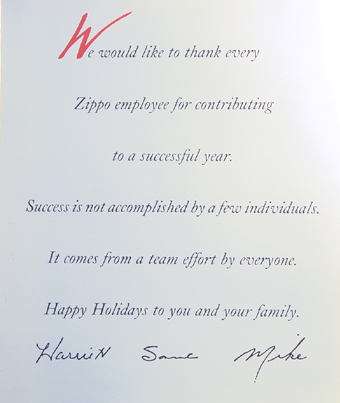 We would like to thank every
Zippo employee for contributing
to a successful year.
Success is not accomplished by a few individuals.
It comes from a team effort by everyone.
Happy Holidays to you and your family.
Mike